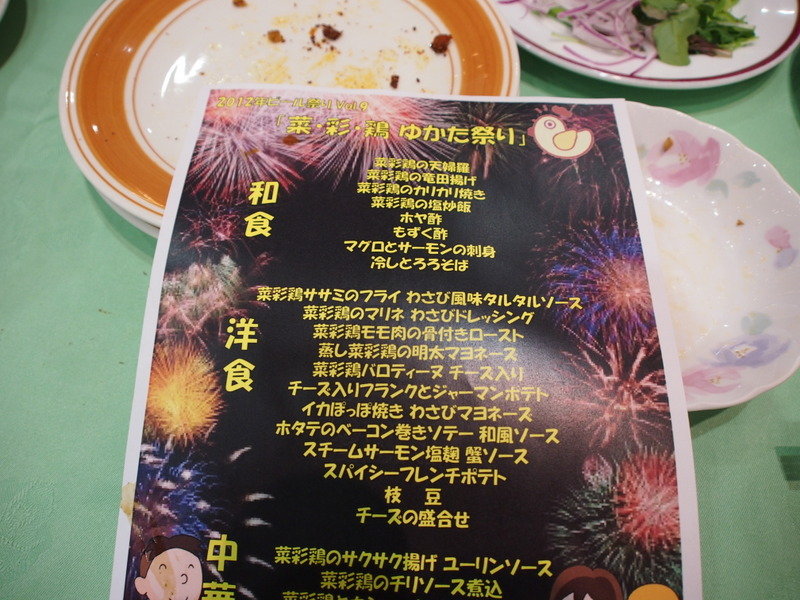 2012年ビール祭り Vol.9
「菜・彩・鶏 ゆかた祭り」
和食
菜彩鶏の天婦羅
菜彩鶏の竜田揚げ
菜彩鶏のカリカリ焼き
菜彩鶏の塩炒飯
ホヤ酢
もずく酢
マグロとサーモンの刺身
冷しとろろそば
洋食
菜彩鶏ササミのフライ わさび風味タルタルソース
菜彩鶏のマリネ わさびドレッシング
菜彩鶏モモ肉の骨付きロースト
蒸し菜彩鶏の明太マヨネーズ
菜彩鶏バロティーヌ チーズ入り
チーズ入りフランクとジャーマンポテト
イカぽっぽ焼き わさびマヨネーズ
ホタテのベーコン巻きソテー 和風ソース
スチームサーモン塩麹 蟹ソース
スパイシーフレンチポテト
枝 豆
チーズの盛合せ
中華
菜彩鶏のサクサク揚げ ユーリンソース
菜彩鶏のチリソース煮込